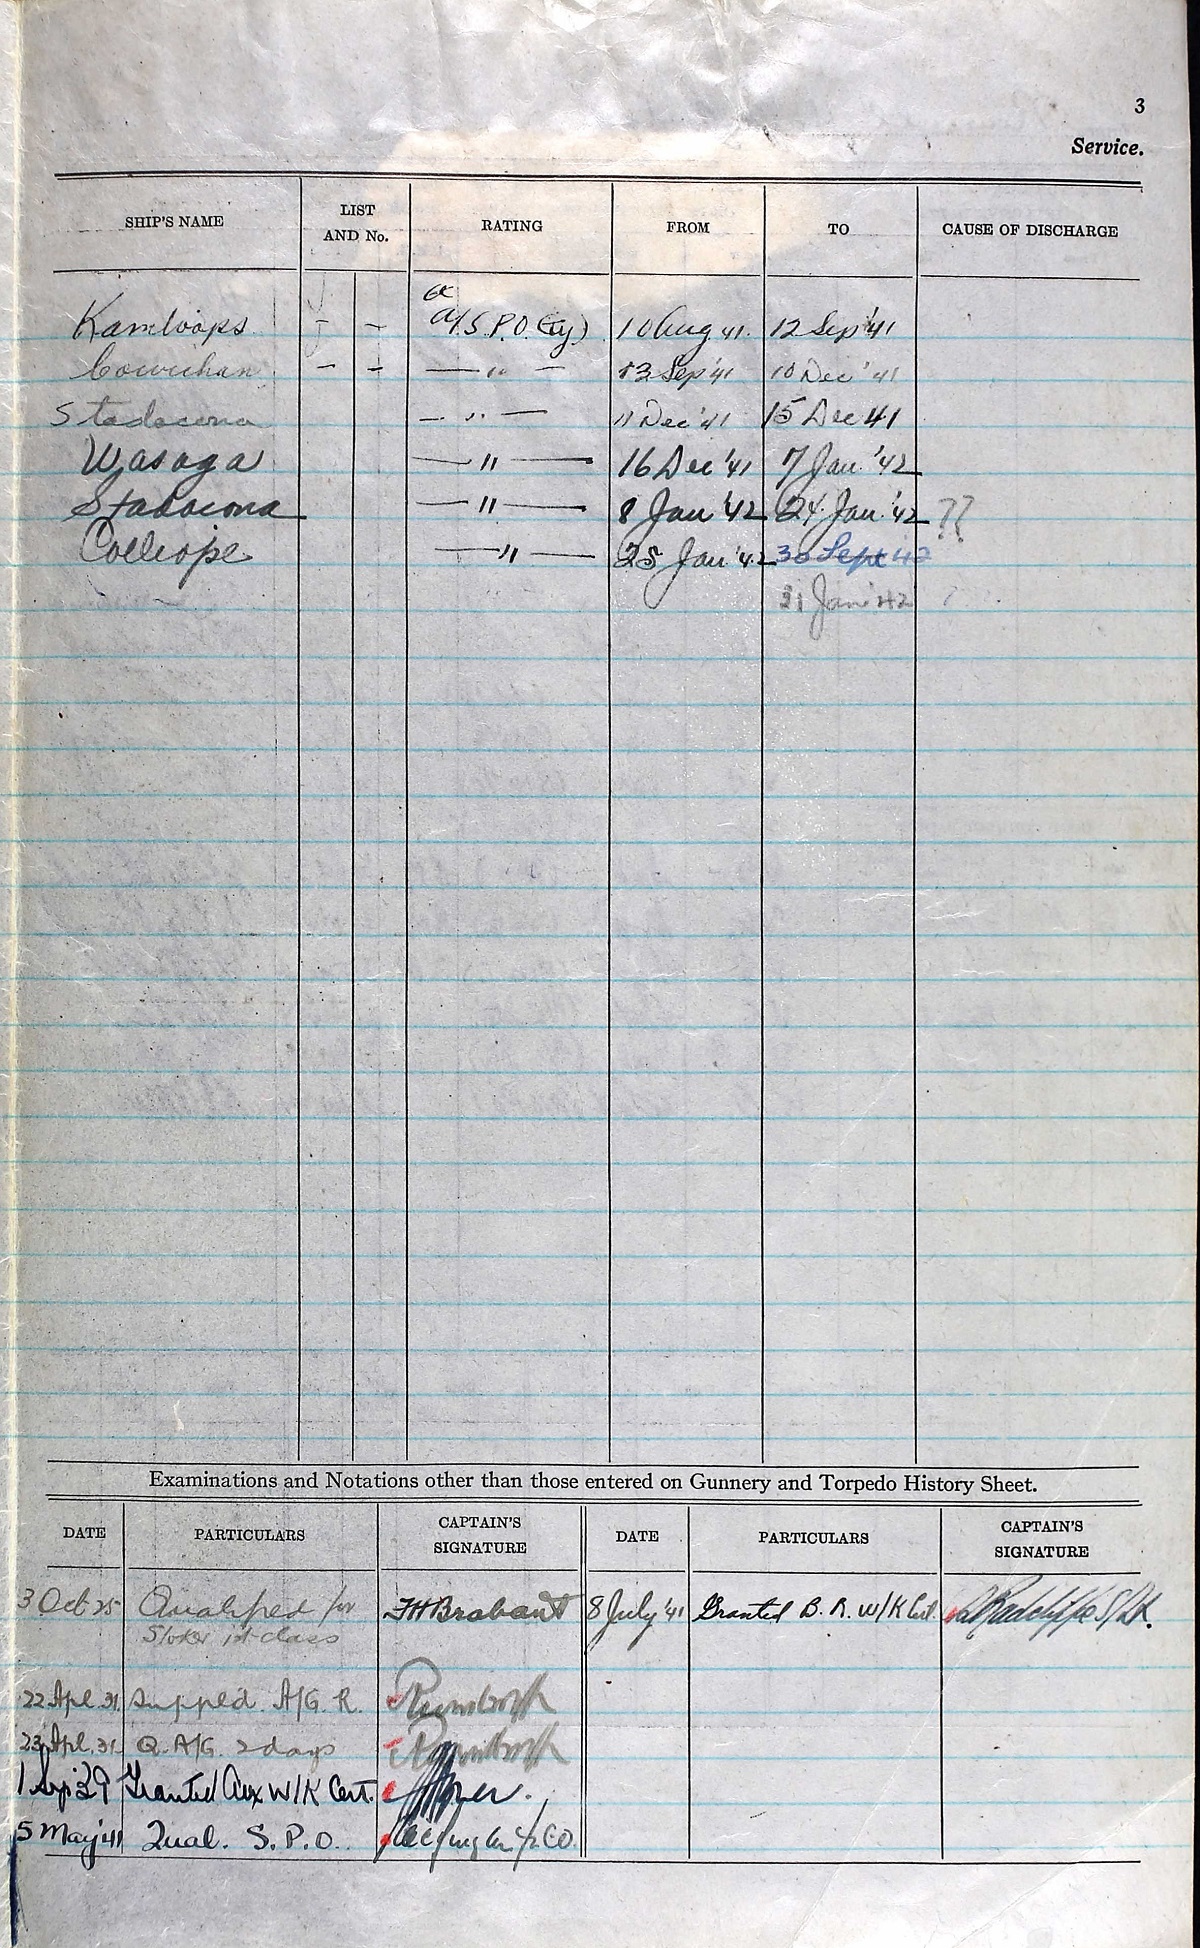 3
Service.
SHIP'S NAME LIST AND No. RATING FROM TO CAUSE OF DISCHARGE
Kamloops - - A/S.P.O. (Ty) 10 Aug 41. 12 Sep '41
Cowichan - - — " — 13 Sep '41 10 Dec '41
Stadacona — " — 11 Dec '41 15 Dec 41
Wasaga — " — 16 Dec '41 7 Jan '42
Stadacona — " — 8 Jan '42 24 Jan '42 ??
Calliope — " — 25 Jan '42 30 Sept 42
31 Jan '42
Examinations and Notations other than those entered on Gunnery and Torpedo History Sheet.
DATE PARTICULARS CAPTAIN'S SIGNATURE DATE PARTICULARS CAPTAIN'S SIGNATURE
3 Oct 25 Qualified for FHBrabant 8 July '41 Granted B. R. W/K Cert. Radcliffe S/Lt.
Stoker 1st class
22 Apl. 31 Supp'l'd. A/G. R.
23 Apl. 31 Q. A/G. 2 days
1 Sep 39 Granted Aux W/K Cert.
5 May '41 Qual. S. P. O.